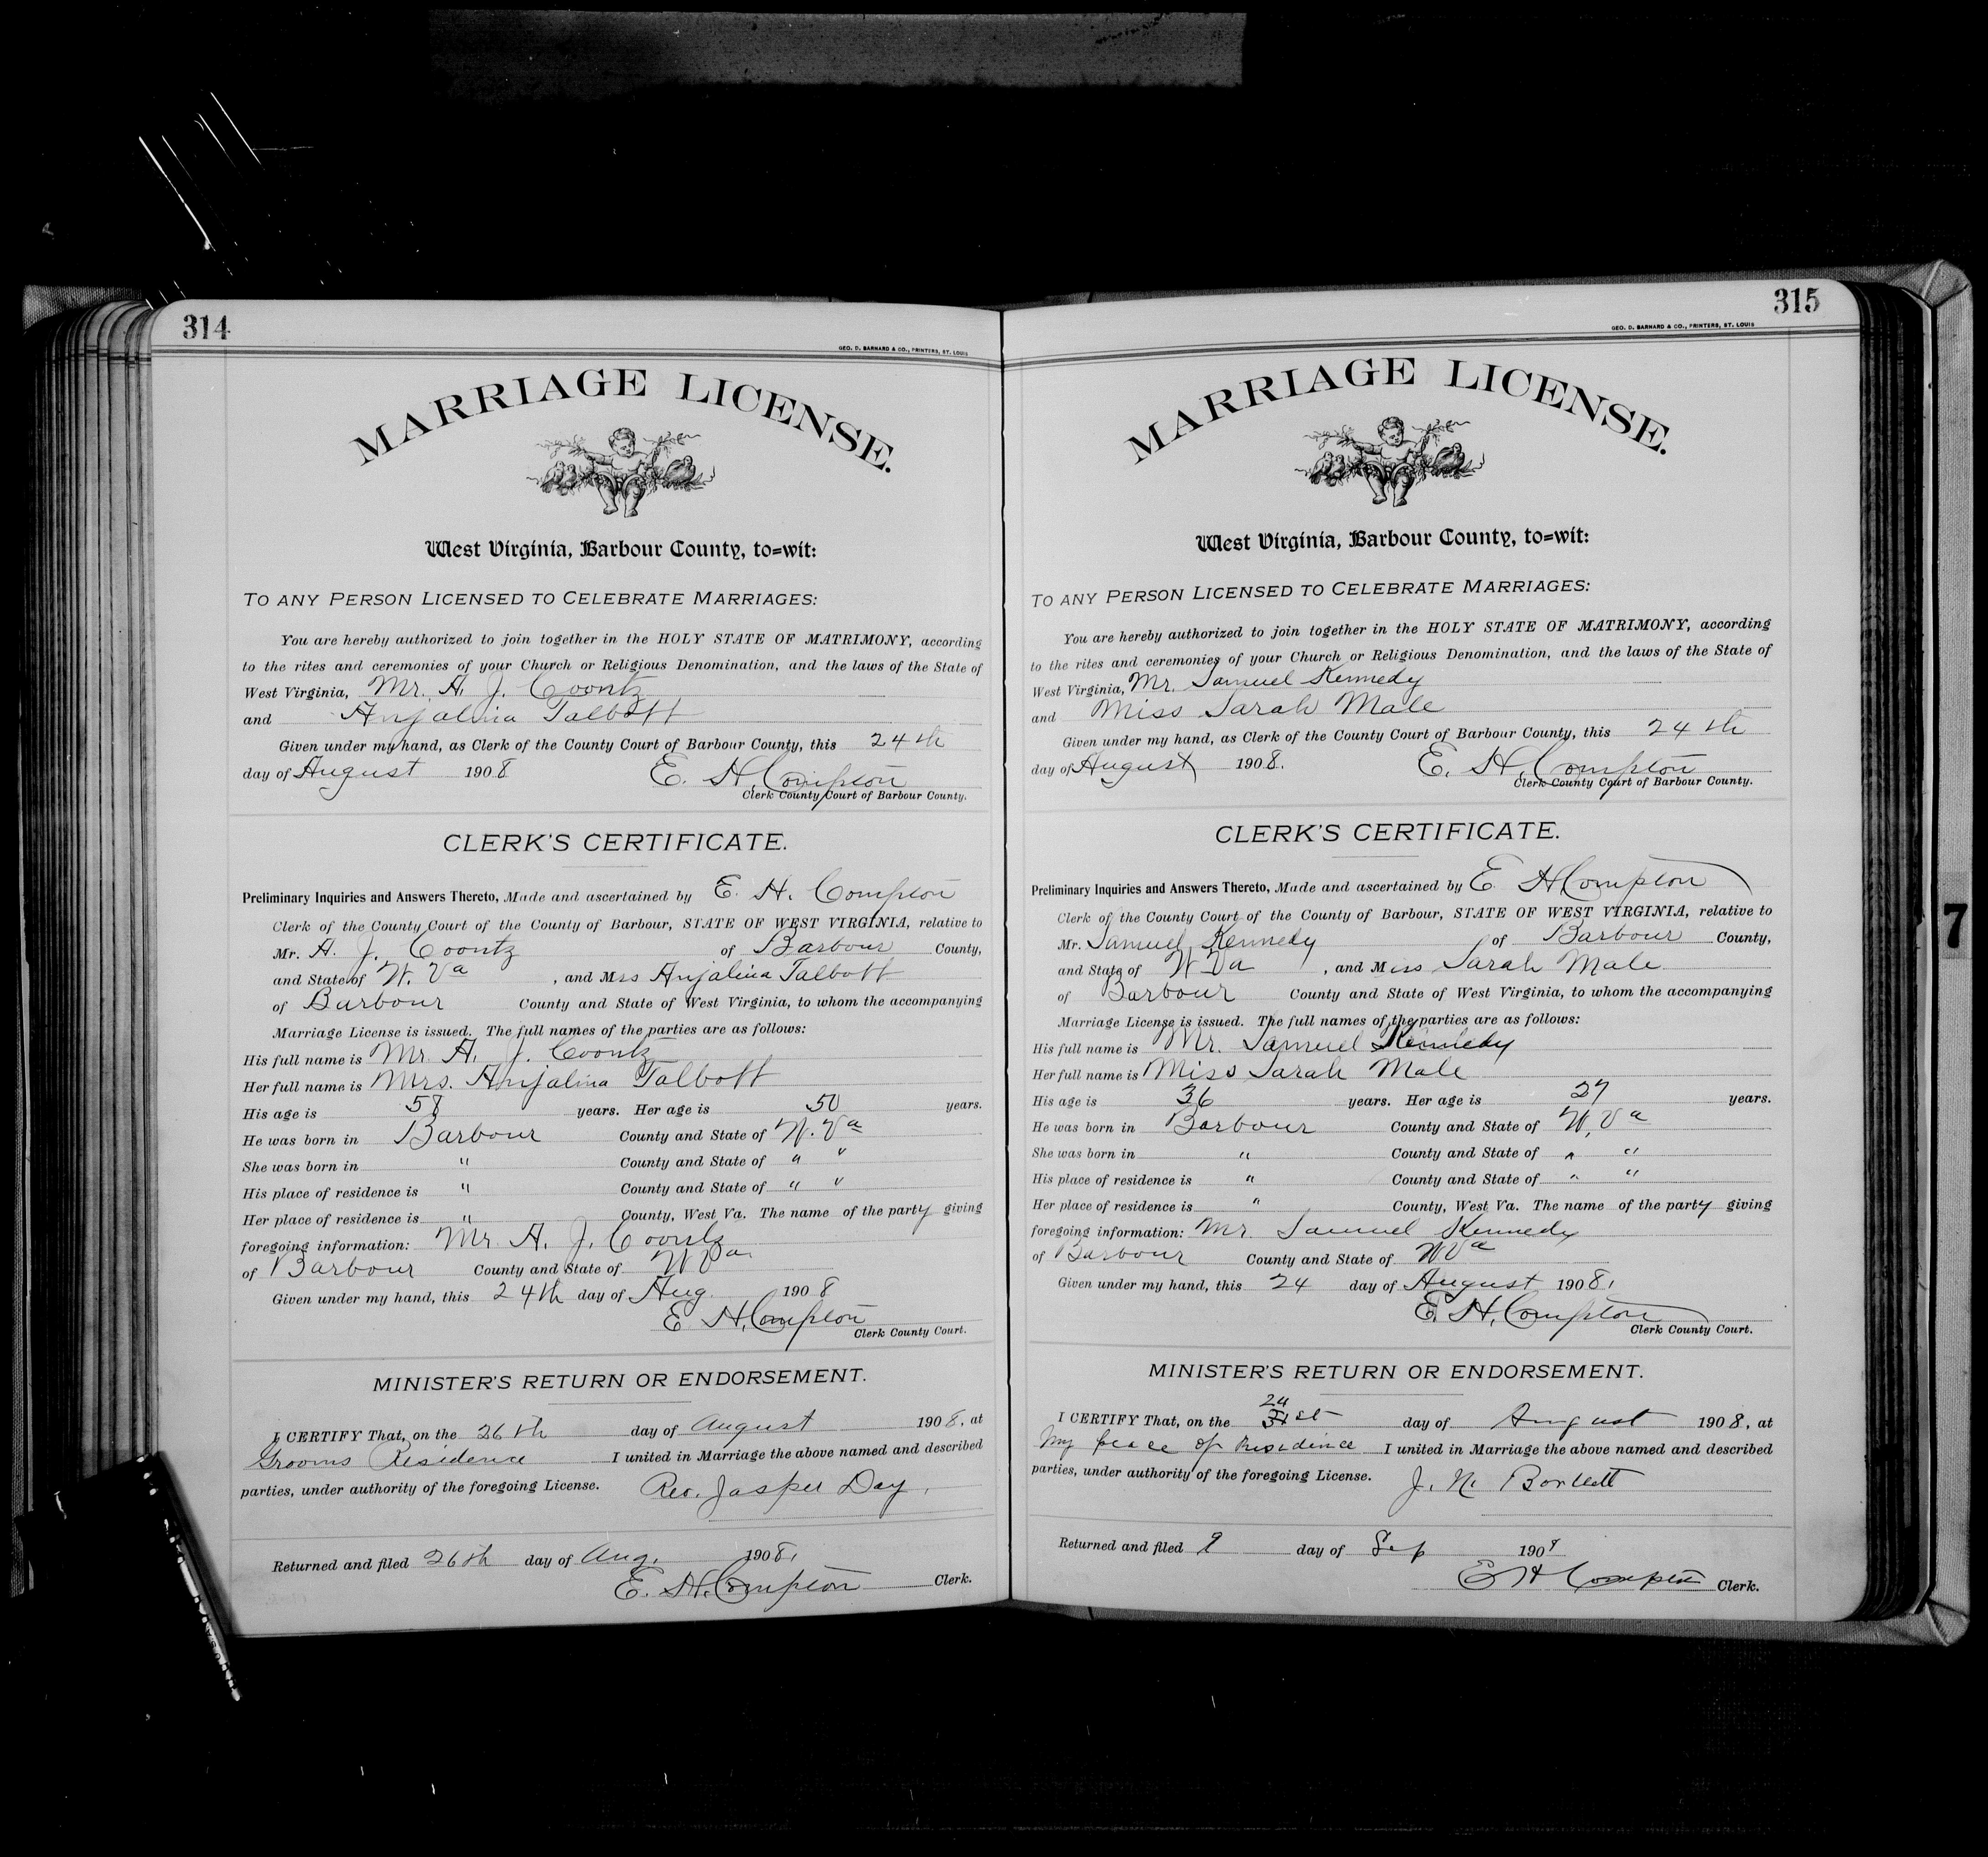 314
GEO. D. BARNARD & CO., PRINTERS, ST. LOUIS
MARRIAGE LICENSE.
West Virginia, Barbour County, to=wit:
TO ANY PERSON LICENSED TO CELEBRATE MARRIAGES:
You are hereby authorized to join together in the HOLY STATE OF MATRIMONY, according
to the rites and ceremonies of your Church or Religious Denomination, and the laws of the State of
West Virginia, Mr. A. J. Coontz
and Anjalina Talbott
Given under my hand, as Clerk of the County Court of Barbour County, this 24th
day of August 1908 E. H. Compton
Clerk County Court of Barbour County.
CLERK'S CERTIFICATE.
Preliminary Inquiries and Answers Thereto, Made and ascertained by E. H. Compton
Clerk of the County Court of the County of Barbour, STATE OF WEST VIRGINIA, relative to
Mr. A. J. Coontz of Barbour County,
and State of W. Va , and Mrs Anjalina Talbott
of Barbour County and State of West Virginia, to whom the accompanying
Marriage License is issued. The full names of the parties are as follows:
His full name is Mr. A. J. Coontz
Her full name is Mrs. Anjalina Talbott
His age is 58 years. Her age is 50 years.
He was born in Barbour County and State of W. Va
She was born in " County and State of " "
His place of residence is " County and State of " "
Her place of residence is " County, West Va. The name of the party giving
foregoing information: Mr. A. J. Coontz
of Barbour County and State of W Va
Given under my hand, this 24th day of Aug. 1908
E. H. Compton
Clerk County Court.
MINISTER'S RETURN OR ENDORSEMENT.
I CERTIFY That, on the 26th day of August 1908, at
Grooms Residence I united in Marriage the above named and described
parties, under authority of the foregoing License. Rev. Jasper Day.
Returned and filed 26th day of Aug. 1908,
E. H. Compton Clerk.
315
GEO. D. BARNARD & CO., PRINTERS, ST. LOUIS
MARRIAGE LICENSE.
West Virginia, Barbour County, to=wit:
TO ANY PERSON LICENSED TO CELEBRATE MARRIAGES:
You are hereby authorized to join together in the HOLY STATE OF MATRIMONY, according
to the rites and ceremonies of your Church or Religious Denomination, and the laws of the State of
West Virginia, Mr. Samuel Kennedy
and Miss Sarah Male
Given under my hand, as Clerk of the County Court of Barbour County, this 24th
day of August 1908. E. H. Compton
Clerk County Court of Barbour County.
CLERK'S CERTIFICATE.
Preliminary Inquiries and Answers Thereto, Made and ascertained by E H Compton
Clerk of the County Court of the County of Barbour, STATE OF WEST VIRGINIA, relative to
Mr. Samuel Kennedy of Barbour County,
and State of W Va , and Miss Sarah Male
of Barbour County and State of West Virginia, to whom the accompanying
Marriage License is issued. The full names of the parties are as follows:
His full name is Mr. Samuel Kennedy
Her full name is Miss Sarah Male
His age is 36 years. Her age is 27 years.
He was born in Barbour County and State of W. Va
She was born in " County and State of " "
His place of residence is " County and State of " "
Her place of residence is " County, West Va. The name of the party giving
foregoing information: Mr. Samuel Kennedy
of Barbour County and State of W Va
Given under my hand, this 24 day of August 1908,
E. H. Compton
Clerk County Court.
MINISTER'S RETURN OR ENDORSEMENT.
24
I CERTIFY That, on the 31st day of August 1908, at
My place of Residence I united in Marriage the above named and described
parties, under authority of the foregoing License. J. N. Bartlett
Returned and filed 9 day of Sep 190
E H Compton Clerk.
7